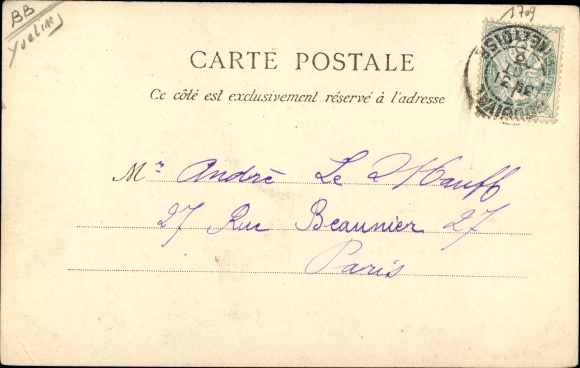 BB
Yvelines
1709
CARTE POSTALE
Ce côté est exclusivement réservé à l'adresse
Mr André Le Hauff
27 Rue Beaunier 27
Paris